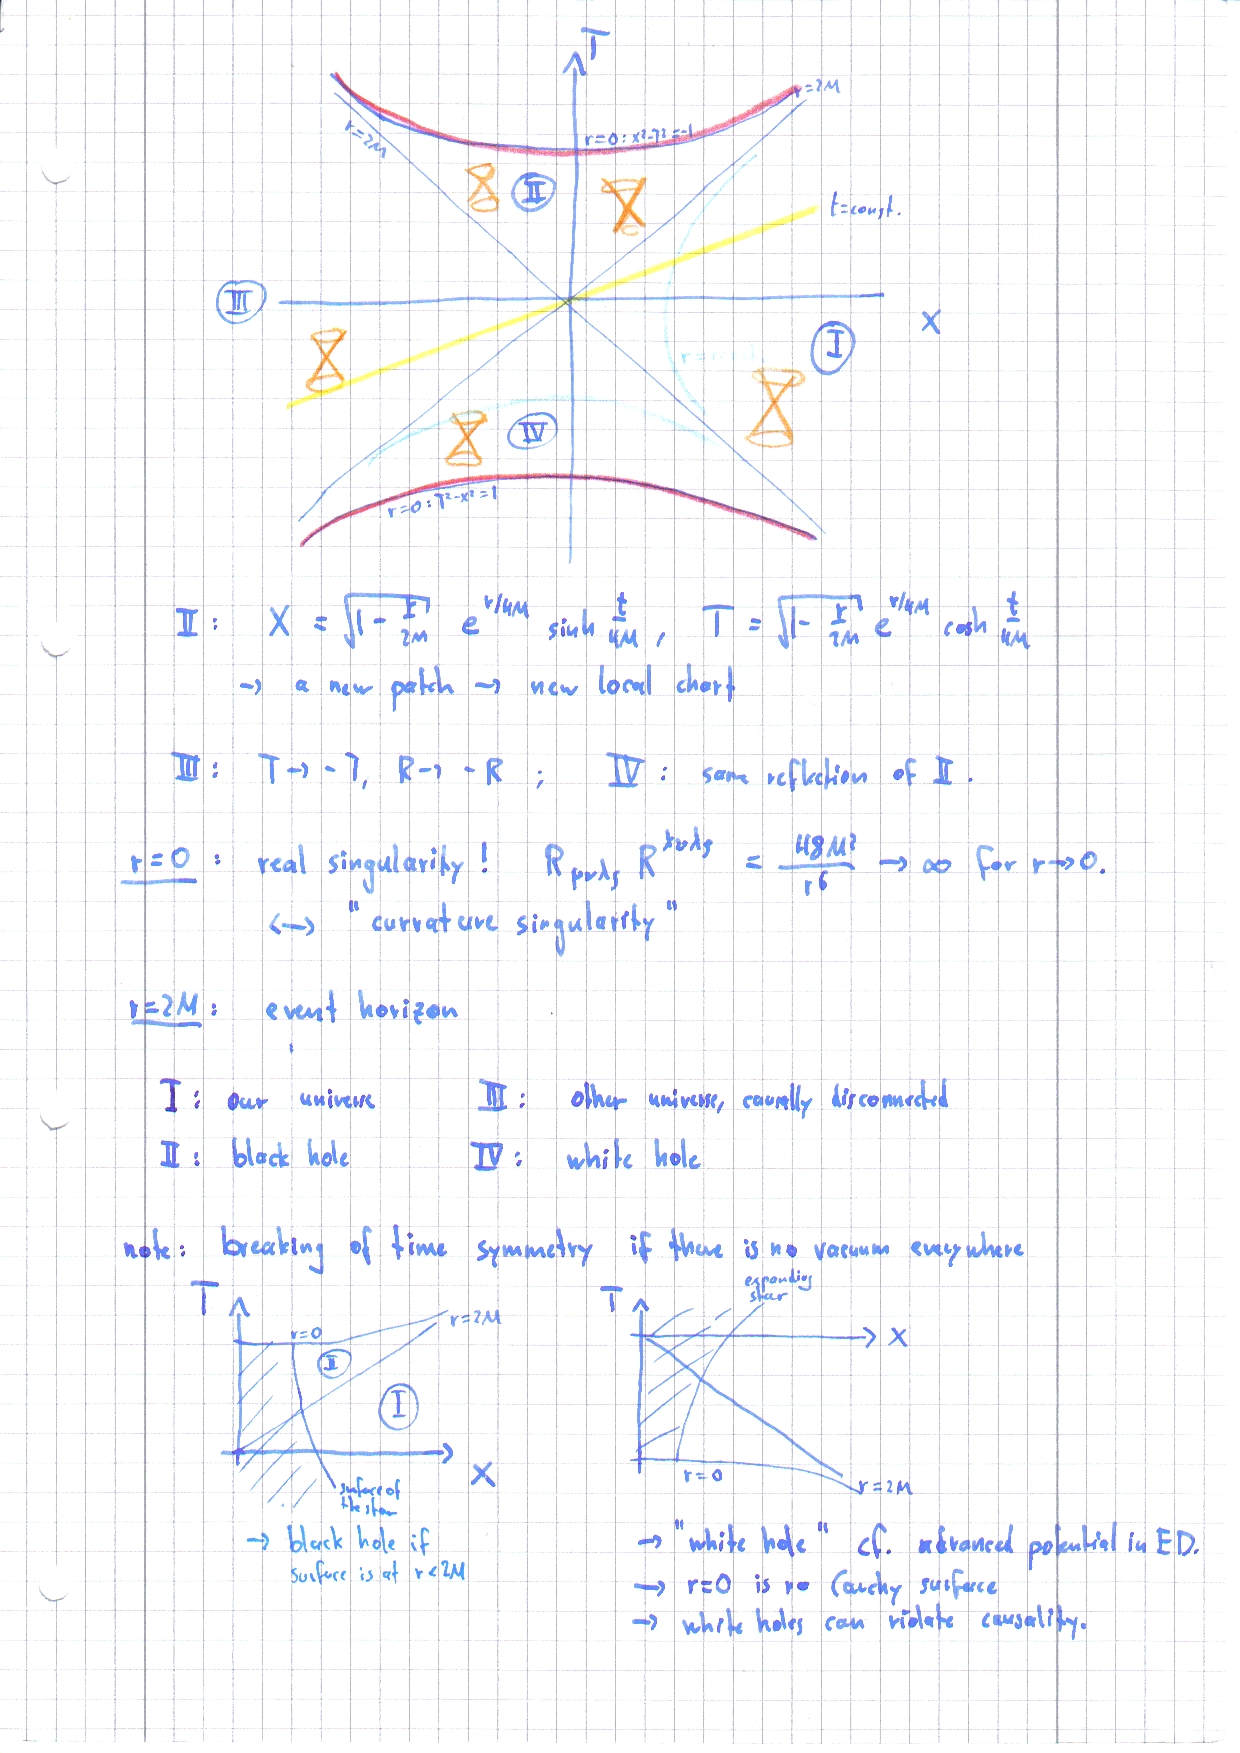 T
r=2M
r=2M
r=0: X²-T²=-1
II
t=const.
III
X
I
IV
r=0: T²-X²=1
II: X = √(1 - r/2M) e^{r/4M} sinh t/4M, T = √(1 - r/2M) e^{r/4M} cosh t/4M
→ a new patch → new local chart
III: T → -T, R → -R ; IV: same reflection of II.
r=0: real singularity! R_{μνλς} R^{μνλς} = 48M²/r⁶ → ∞ for r→0.
↔ "curvature singularity"
r=2M: event horizon
I: our universe III: other universe, causally disconnected
II: black hole IV: white hole
note: breaking of time symmetry if there is no vacuum everywhere
T
r=0
r=2M
II
I
X
surface of
the star
→ black hole if
surface is at r<2M
T
expanding
star
X
r=0
r=2M
→ "white hole" cf. advanced potential in ED.
→ r=0 is no Cauchy surface
→ white holes can violate causality.